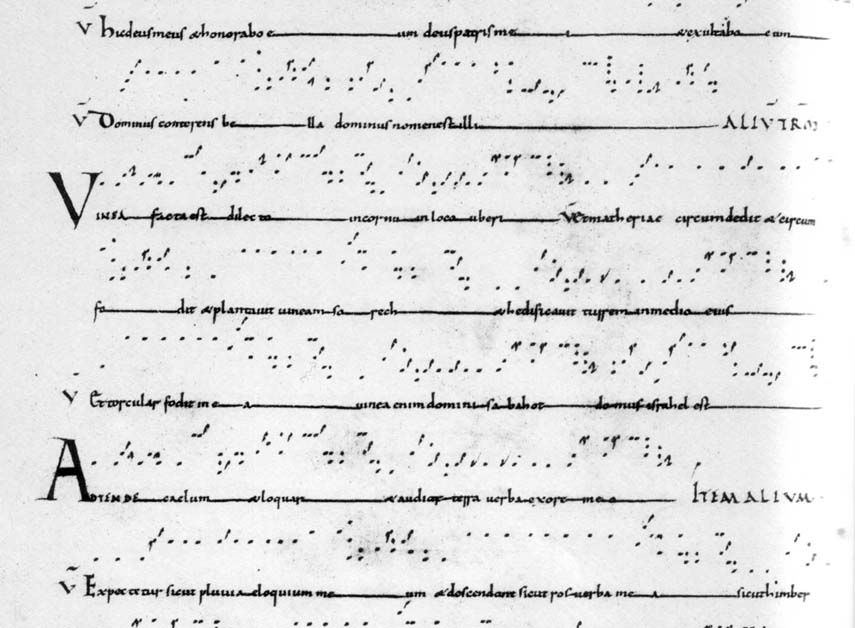 V̄ hicdeusmeus & honorabo e um deuspatrisme i & exultabo eum
V̄ Dominus conterens be lla dominus nomen est illi ALIV̄ TR̄
VINEA facta est dilecta incornu inloco uberi V̄ Et matheriae circumdedit & circum
fo dit & plantavit vineam so rech & hedificavit turrem inmedio eius
V̄ Et torcular fodit in e a vinea enim domini sabahot domus israhel est
ADTENDE caelum & loquar & audiat terra verba exore me o ITEM ALIUM
V̄ Expectetur sicut pluvia eloquium me um & descendant sicut ros verba me a sicut himber